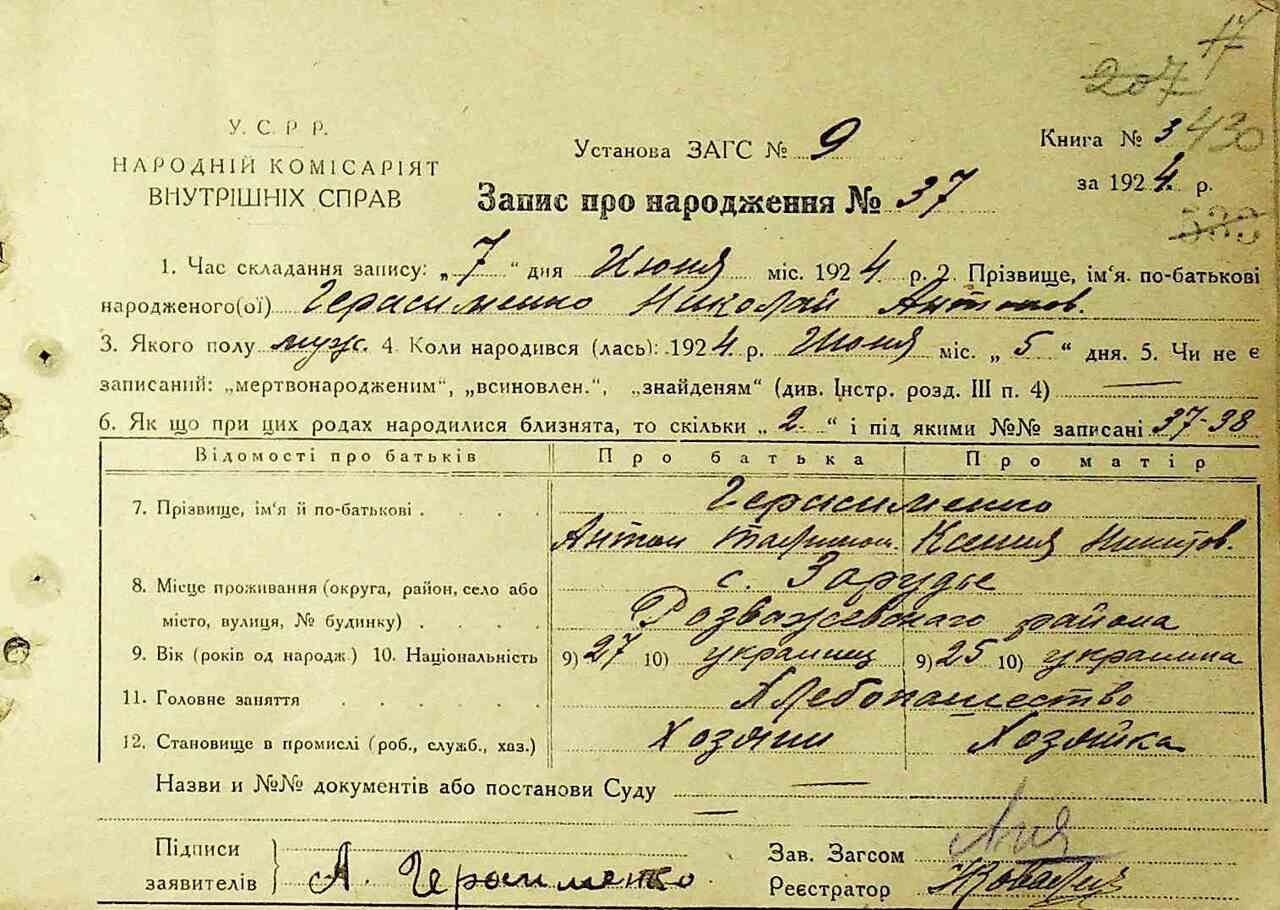 17
207
У. С. Р Р.
НАРОДНІЙ КОМІСАРІЯТ
ВНУТРІШНІХ СПРАВ
Установа ЗАГС № 9
Книга № 3 430
за 1924 р.
Запис про народження № 37
533
1. Час складання запису: „7“ дня Июня міс. 1924 р. 2. Прізвище, ім‘я. по-батькові
народженого(ої) Герасименко Николай Антонов.
3. Якого полу муж. 4. Коли народився (лась): 1924 р. Июня міс. „5“ дня. 5. Чи не є
записаний: „мертвонародженим“, „всиновлен.“, „знайденям“ (див. Інстр. розд. III п. 4)
6. Як що при цих родах народилися близнята, то скільки „2“ і під якими №№ записані 37-38
Відомості про батьків Про батька Про матір
7. Прізвище, ім‘я й по-батькові . . . . Герасименко
Антон Ксения Никитов.
8. Місце проживання (округа, район, село або с. Зарудье
місто, вулиця, № будинку) . . . . Розважевского района
9. Вік (років од народж.) 10. Національність 9) 27 10) украинец 9) 25 10) украинка
11. Головне заняття . . . . . . Хлебопашество
12. Становище в промислі (роб., служб., хаз.) Хозяин Хозяйка
Назви и №№ документів або постанови Суду
Підписи
заявителів А. Герасименко
Зав. Загсом
Реєстратор